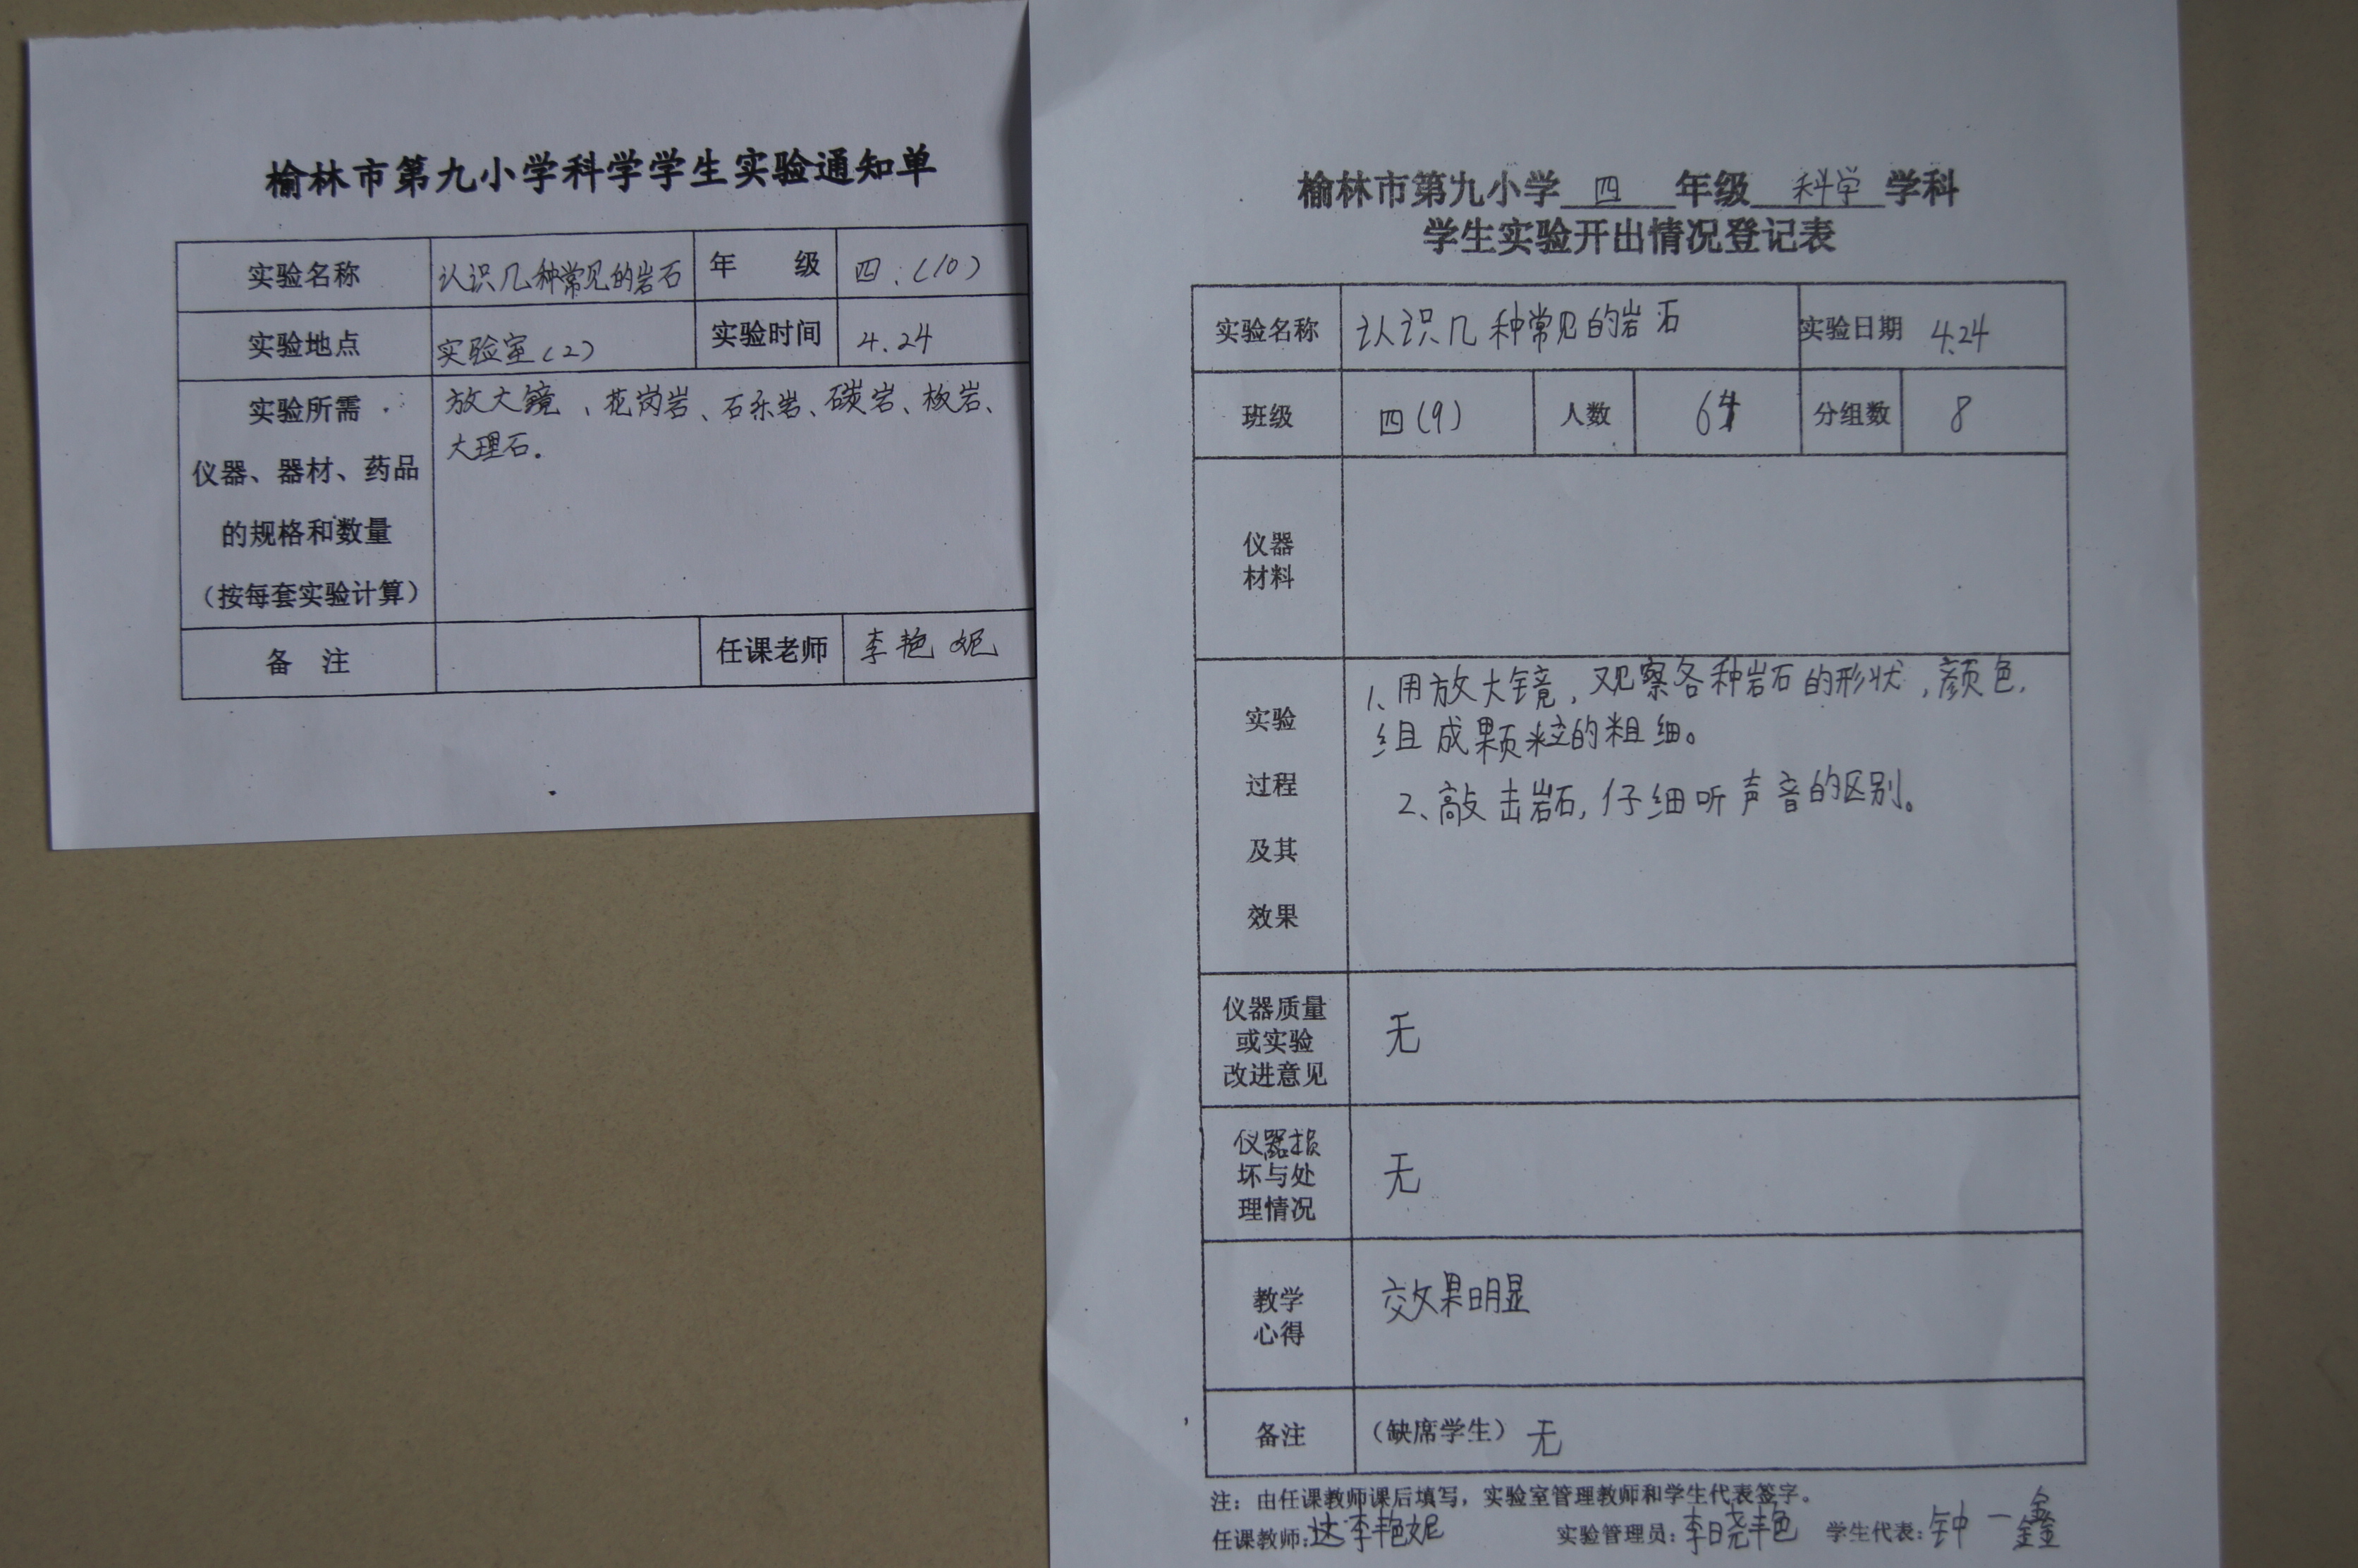 榆林市第九小学科学学生实验通知单
实验名称 认识几种常见的岩石 年 级 四.(10)
实验地点 实验室(2) 实验时间 4.24
实验所需 放大镜、花岗岩、石乐岩、碳岩、板岩、
大理石.
仪器、器材、药品
的规格和数量
（按每套实验计算）
备 注 任课老师 李艳妮
榆林市第九小学 四 年级 科学 学科
学生实验开出情况登记表
实验名称 认识几种常见的岩石 实验日期 4.24
班级 四(9) 人数 分组数 8
仪器
材料
实验
过程
及其
效果
1、用放大镜,观察各种岩石的形状,颜色,
组成颗粒的粗细。
2、敲击岩石,仔细听声音的区别。
仪器质量
或实验
改进意见
无
仪器损
坏与处
理情况
无
教学
心得
效果明显
备注 （缺席学生） 无
注：由任课教师课后填写，实验室管理教师和学生代表签字。
任课教师: 李艳妮 实验管理员: 李晓艳 学生代表: 钟一鑫